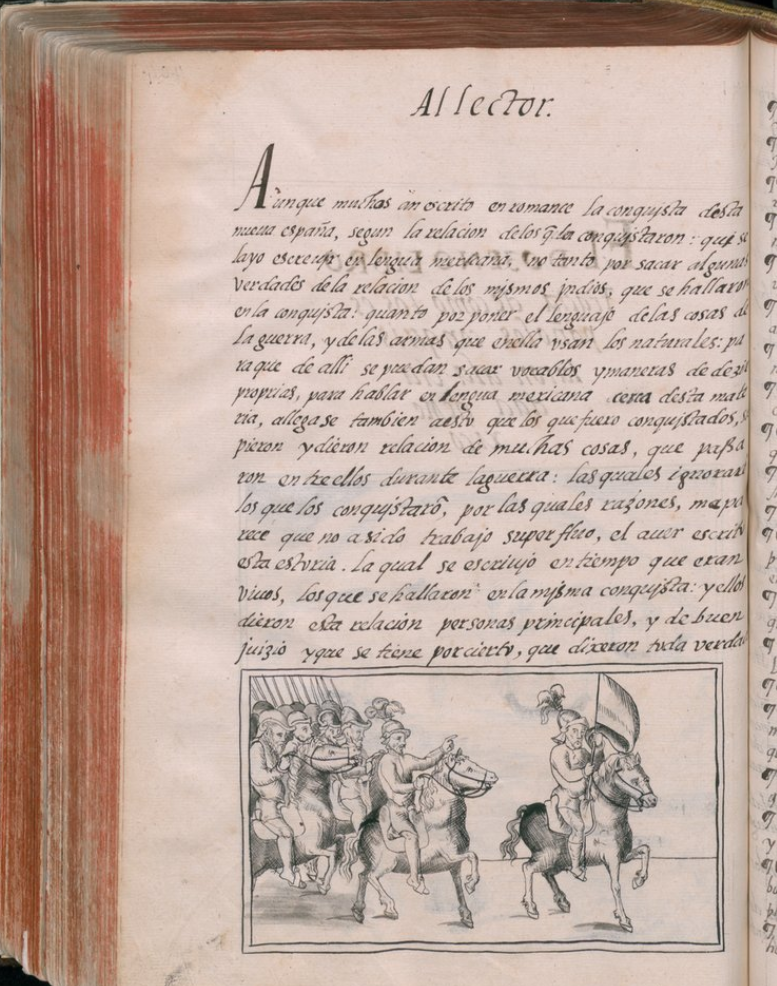 Al lector.
Aunque muchos an escrito en romance la conquista desta
nueua españa, segun la relacion de los q̃ la conquistaron: quise
la yo escreuir en lengua mexicana, no tanto por sacar algunas
verdades de la relacion de los mismos indios, que se hallaron
en la conquista: quanto por poner el lenguaje de las cosas de
la guerra, y de las armas que enella vsan los naturales: pa
ra que de alli se puedan sacar vocablos y maneras de dezir
proprias, para hablar en lengua mexicana cerca desta mate
ria, allegase tambien aesto que los que fuero conquistados, s
pieron y dieron relacion de muchas cosas, que passa
ron entre ellos durante la guerra: las quales ignorarō
los que los conquistarō, por las quales razones, me pa
rece que no a sido trabajo superfluo, el auer escrito
esta estoria. La qual se escriuio en tiempo que eran
viuos, los que se hallaron en la misma conquista: y ellos
dieron esta relacion personas principales, y de buen
juizio y que se tiene por cierto, que dixeron toda verdad